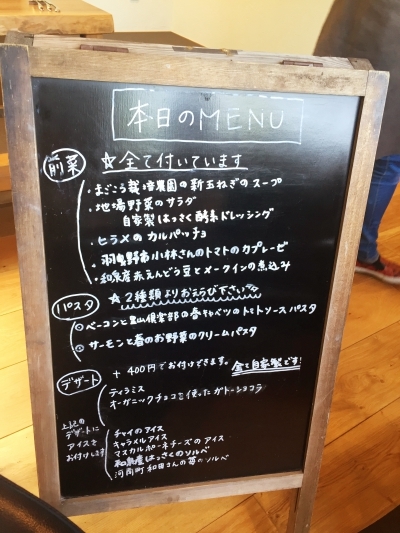 本日のMENU
前菜
☆全て付いています
・まごころ栽培農園の新玉ねぎのスープ
・地場野菜のサラダ
自家製はっさく酵素ドレッシング
・ヒラメのカルパッチョ
・羽曳野市小林さんのトマトのカプレーゼ
・和泉産赤えんどう豆とメークインの煮込み
パスタ
☆2種類よりおえらび下さい
①ベーコンと里山倶楽部の春キャベツのトマトソースパスタ
②サーモンと春のお野菜のクリームパスタ
デザート
+400円でお付けできます。全て自家製です!
ティラミス
オーガニックチョコを使ったガトーショコラ
上記の
デザートに
アイスを
お付けします
チャイのアイス
キャラメルアイス
マスカルポーネチーズのアイス
和泉産はっさくのソルベ
河南町和田さんの苺のソルベ